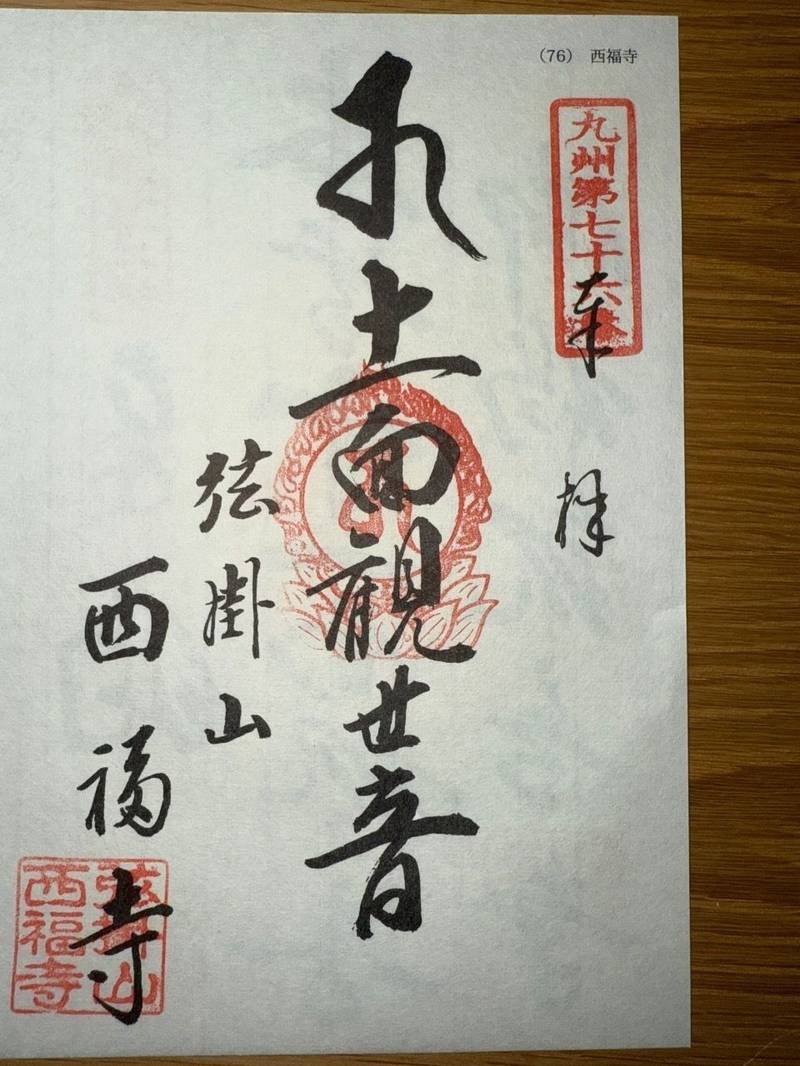 (76) 西福寺
九州第七十六番
奉拝
十一面観世音
弦掛山
西福寺
弦掛山
西福寺